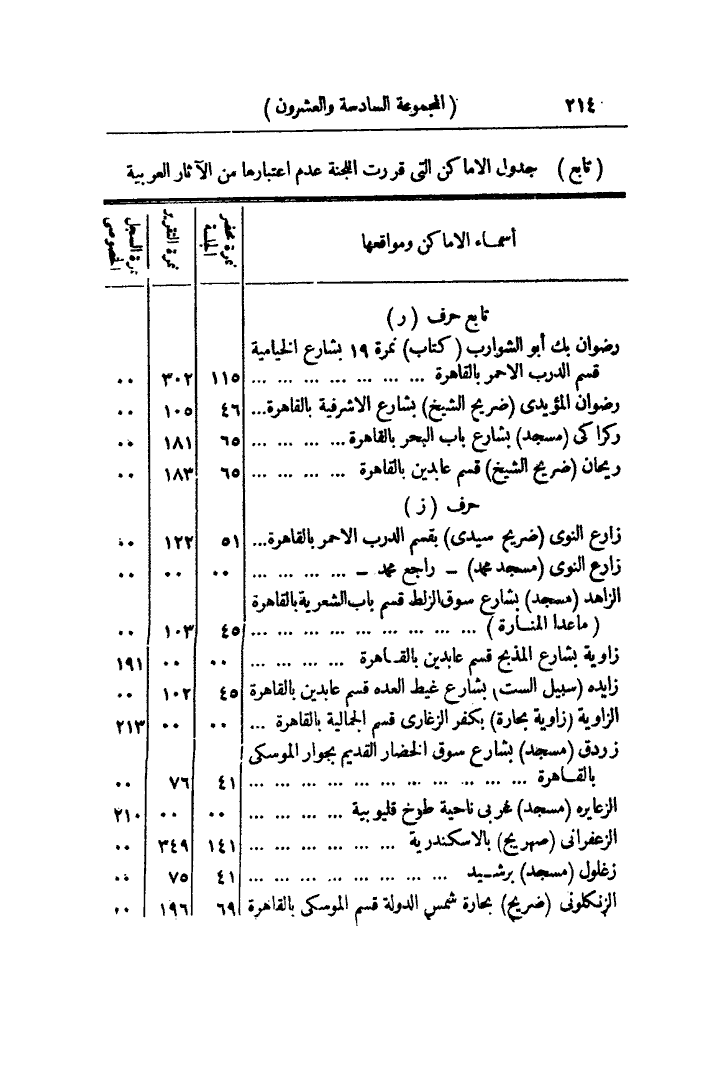 ٢١٤ ( المجموعة السادسة والعشرون )
( تابع ) جدول الاماكن التى قررت اللجنة عدم اعتبارها من الآثار العربية
أسماء الاماكن ومواقعها | نمرة محضر الجلسة | نمرة التقرير | نمرة السجل الخصوصى
تابع حرف ( ر )
رضوان بك أبو الشوارب ( كتاب ) نمرة ١٩ بشارع الخيامية
قسم الدرب الاحمر بالقاهرة ... ... ... ... ... ... ... ١١٥ ٣٠٢ ٠٠
رضوان المؤيدى (ضريح الشيخ) بشارع الاشرفية بالقاهرة... ٤٦ ١٠٥ ٠٠
ركراكى (مسجد) بشارع باب البحر بالقاهرة... ... ... ... ٦٥ ١٨١ ٠٠
ريحان (ضريح الشيخ) قسم عابدين بالقاهرة ... ... ... ... ٦٥ ١٨٣ ٠٠
حرف ( ز )
زارع النوى (ضريح سيدى) بقسم الدرب الاحمر بالقاهرة... ٥١ ١٢٢ ٠٠
زارع النوى (مسجد محمد) – راجع محمد – ... ... ... ... ٠٠ ٠٠ ٠٠
الزاهد (مسجد) بشارع سوق الزلط قسم باب الشعرية بالقاهرة
( ماعدا المنارة ) ... ... ... ... ... ... ... ... ... ٤٥ ١٠٣ ٠٠
زاوية بشارع المذبح قسم عابدين بالقاهرة ... ... ... ... ٠٠ ٠٠ ١٩١
زايده (سبيل الست) بشارع غيط العده قسم عابدين بالقاهرة ٤٥ ١٠٢ ٠٠
الزاوية (زاوية بحارة) بكفر الزغارى قسم الجمالية بالقاهرة ... ٠٠ ٠٠ ٢١٣
زردق (مسجد) بشارع سوق الخضار القديم بجوار الموسكى
بالقاهرة ... ... ... ... ... ... ... ... ... ... ... ٤١ ٧٦ ٠٠
الزعايره (مسجد) بحربى ناحية طوخ قليوبية ... ... ... ... ٠٠ ٠٠ ٢١٠
الزعفرانى (صهريج) بالاسكندرية ... ... ... ... ... ... ١٤١ ٣٤٩ ٠٠
زغلول (مسجد) برشيد ... ... ... ... ... ... ... ... ٤١ ٧٥ ٠٠
الزنكلونى (ضريح) بحارة شمس الدولة قسم الموسكى بالقاهرة ٦٩ ١٩٦ ٠٠